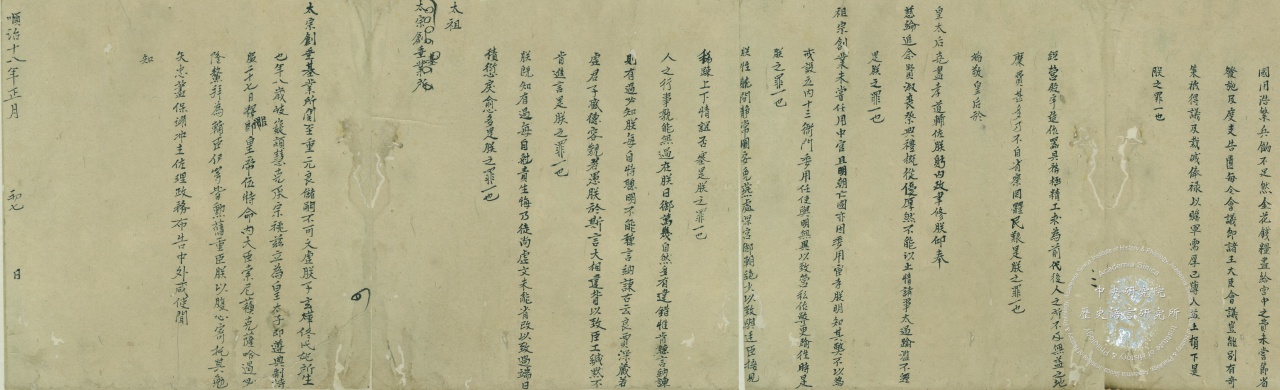 國用浩繁兵餉不足然金花錢糧盡給宮中之費未嘗節省
發施及度支告匱每令會議卽諸王大臣會議豈能別有奇
策祇得議及裁減俸祿以贍軍需厚己薄人益上損下是
朕之罪一也
經營殿宇造作器具務極精工求為前代後人之所不及無益之地
糜費甚多乃不自省察罔體民艱是朕之罪一也
端敬皇后於
皇太后克盡孝道輔佐朕躬內政聿修朕仰奉
慈綸追念賢淑喪祭典禮概從優厚然不能以止情諸事太過踰濫不經
是朕之罪一也
祖宗創業未嘗任用中官且明朝亡國亦因委用宦寺朕明知其弊不以為
戒設立內十三衙門委用任使與明無異以致營私作弊更踰往時是
朕之罪一也
朕性耽閒靜常圖安逸燕處深宮御朝絕少以致與廷臣接見
稀疎上下情誼否塞是朕之罪一也
人之行事孰能無過在朕日御萬幾自然多有違錯惟肯聽言納諫
則有過必知朕每自恃聰明不能聽言納諫古云良賈深藏若
虛君子盛德容貌若愚朕於斯言大相違背以致臣工緘默不
肯進言是朕之罪一也
朕既知有過每自尅責生悔乃徒尚虛文未能省改以致過端日
積愆戾愈多是朕之罪一也
太祖
太宗創垂基業所
太宗創垂基業所關至重元良儲嗣不可久虛朕子玄燁佟氏妃所生
也年八歲岐嶷穎慧克承宗祧茲立為皇太子卽遵典制持
服二十七日釋服卽皇帝位特命內大臣索尼蘇克薩哈遏必
隆鰲拜為輔臣伊等皆勳舊重臣朕以腹心寄托其勉
矢忠藎保翊冲主佐理政務布告中外咸使聞
知
順治十八年正月 初七 日
中央研究院
歷史語言研究所
Academia Sinica